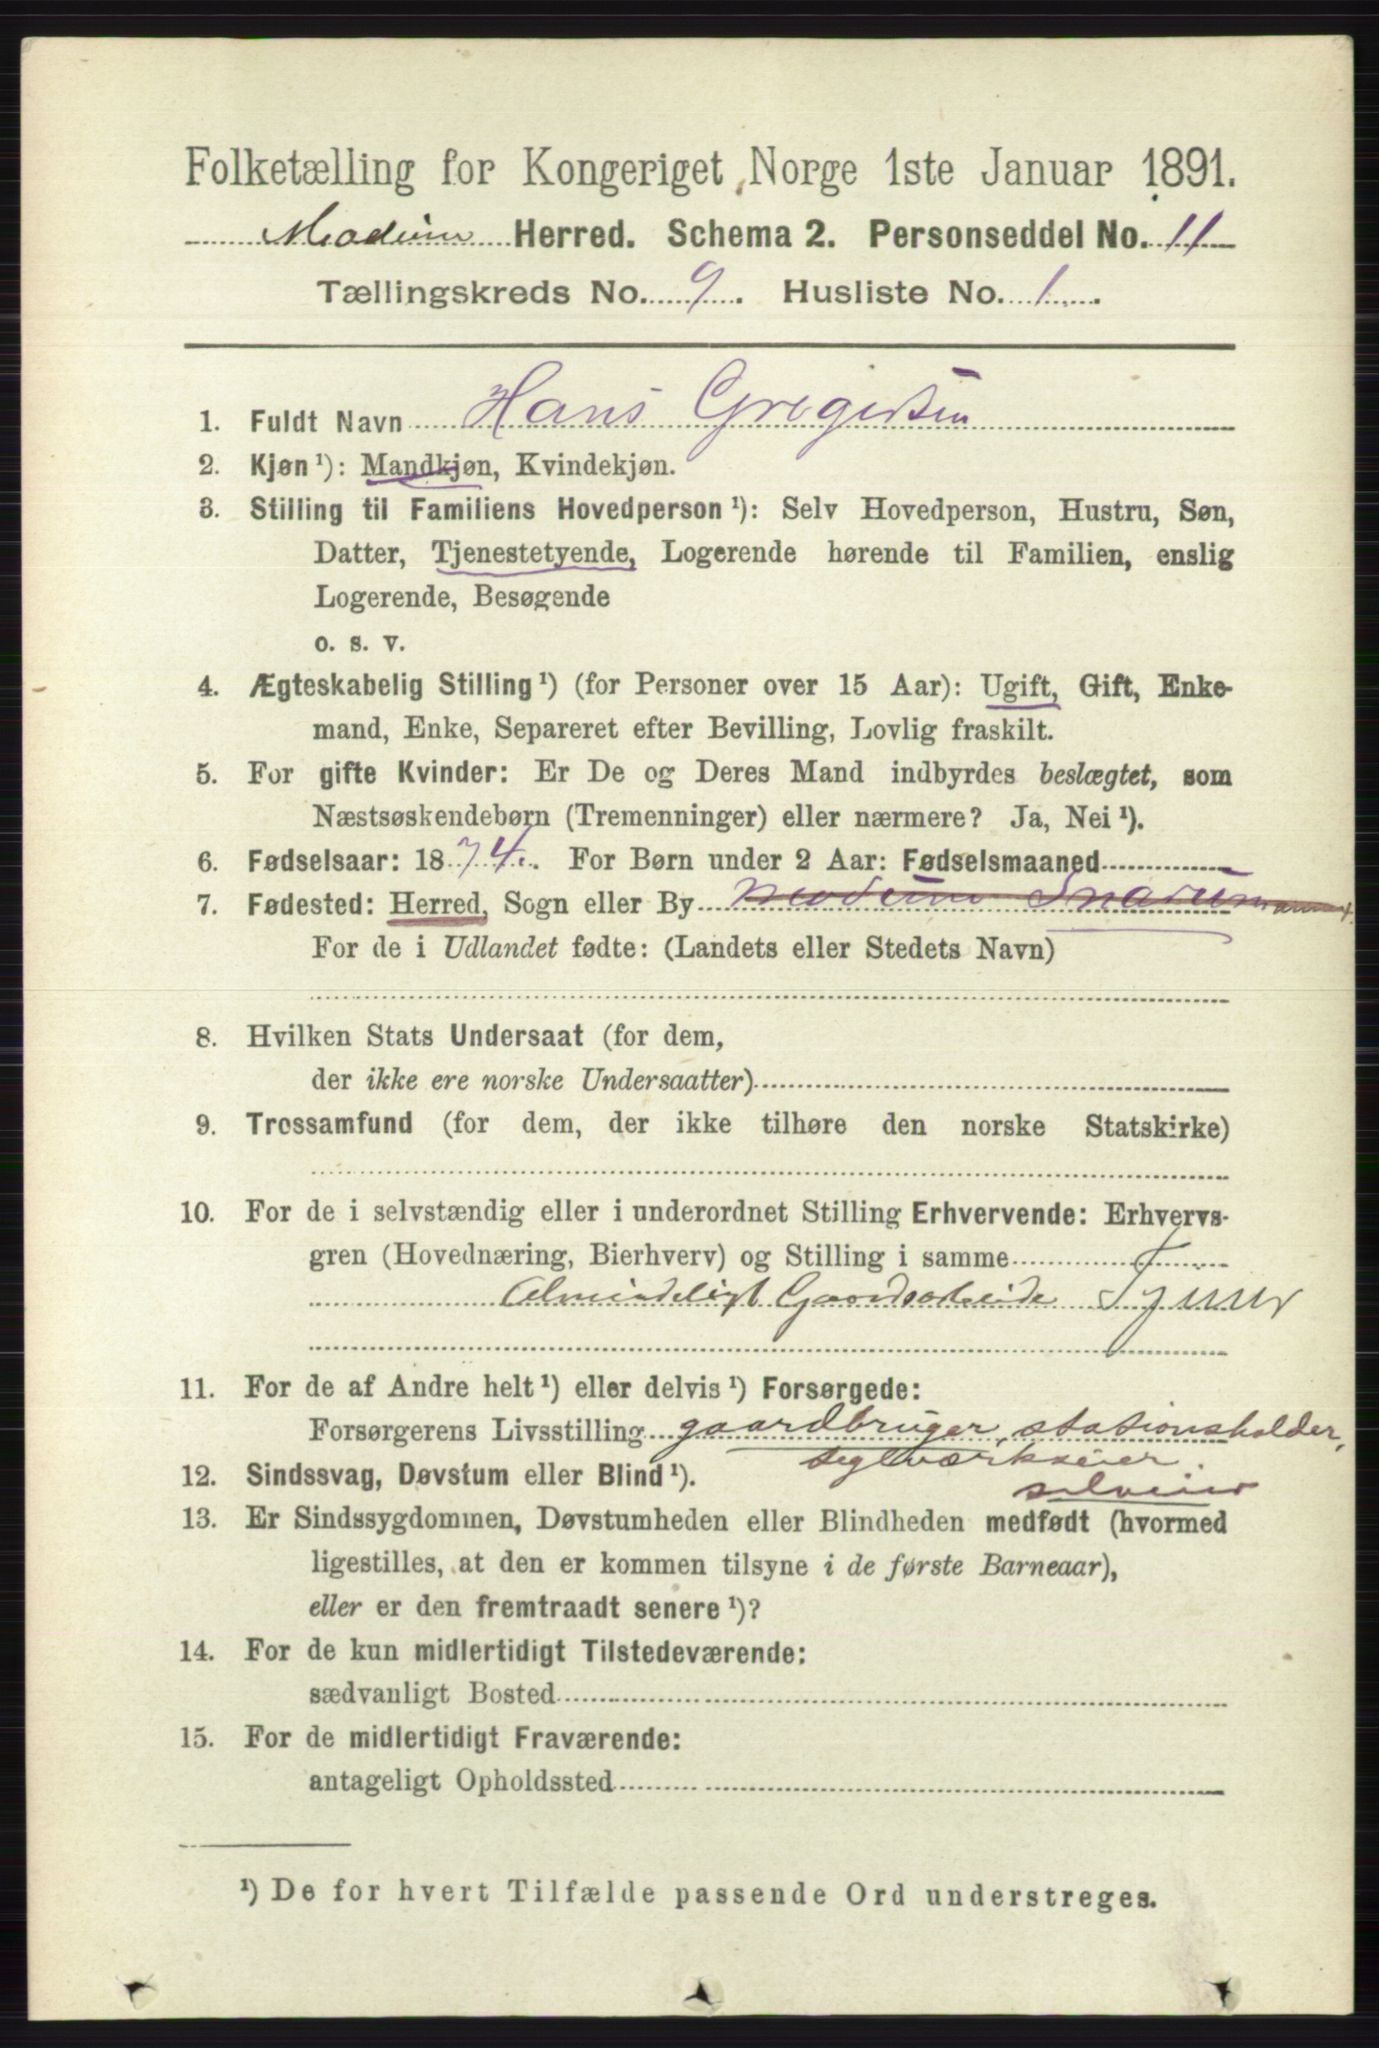 Folketælling for Kongeriget Norge 1ste Januar 1891.
Modum Herred. Schema 2. Personseddel No. 11
Tællingskreds No. 9. Husliste No. 1.
1. Fuldt Navn Hans Gregersen
2. Kjøn ¹): Mandkjøn, Kvindekjøn.
3. Stilling til Familiens Hovedperson ¹): Selv Hovedperson, Hustru, Søn,
Datter, Tjenestetyende, Logerende hørende til Familien, enslig
Logerende, Besøgende
o. s. v.
4. Ægteskabelig Stilling ¹) (for Personer over 15 Aar): Ugift, Gift, Enke-
mand, Enke, Separeret efter Bevilling, Lovlig fraskilt.
5. For gifte Kvinder: Er De og Deres Mand indbyrdes beslægtet, som
Næstsøskendebørn (Tremenninger) eller nærmere? Ja, Nei ¹).
6. Fødselsaar: 1874. For Børn under 2 Aar: Fødselsmaaned
7. Fødested: Herred, Sogn eller By Modum Snarum
For de i Udlandet fødte: (Landets eller Stedets Navn)
8. Hvilken Stats Undersaat (for dem,
der ikke ere norske Undersaatter)
9. Trossamfund (for dem, der ikke tilhøre den norske Statskirke)
10. For de i selvstændig eller i underordnet Stilling Erhvervende: Erhvervs-
gren (Hovednæring, Bierhverv) og Stilling i samme
Almindeligt Gaardsarbeide Tjener
11. For de af Andre helt ¹) eller delvis ¹) Forsørgede:
Forsørgerens Livsstilling gaardbruger, stationsholder,
teglværkseier.
12. Sindssvag, Døvstum eller Blind ¹).
selveier
13. Er Sindssygdommen, Døvstumheden eller Blindheden medfødt (hvormed
ligestilles, at den er kommen tilsyne i de første Barneaar),
eller er den fremtraadt senere ¹)?
14. For de kun midlertidigt Tilstedeværende:
sædvanligt Bosted
15. For de midlertidigt Fraværende:
antageligt Opholdssted
¹) De for hvert Tilfælde passende Ord understreges.